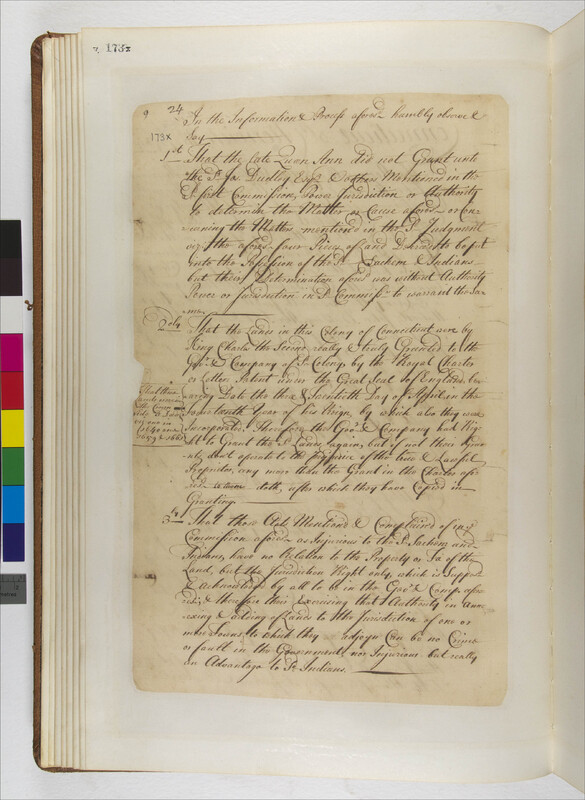 173x
9 24
In the Information & Process afores.d humbly observe &
Say
173x
1st That the late Quen Ann did not Grant unto
the Sd. Jos. Dudley Esqr. & others Mentioned in the
Sd. first Commission, Power Jurisdiction or Authority
to determin the Matter or Cause afores.d or Con=
cerning the Matters mentioned in the Sd. Judgment
or the afores.d four Pieces of Land Decreed to be put
into the Possession of the Sd. Sachem & Indians
but their Determination afores.d was without Authority
Power or Jurisdiction in Sd. Commissrs. to warrant the Sa=
me.
2dly That the Lands in this Colony of Connecticut were by
King Charles the Second really & truly Granted to the
Govr. & Company of Sd. Colony by the Royal Charter
or Letters Patent under the Great Seal of England, be=
aring Date the three & Twentieth Day of April in the
fourteenth Year of his Reign, by which also they were
Incorporated, Therefore the Govr. & Company had Rig=
ht to Grant the Sd. Lands again, but if not their Gra=
nts dont operate to the Prejudice of the true & Lawful
Proprietor, any more than the Grant in the Charter afo=
resd. doth, after which they have Copied in
Granting.
That these
Lands were
in
1640 and
1659 & 1661
3ly That those Acts Mentiond & Complaind of in Sd.
Commission afores.d as Injurious to the Sd. Sachem and
Indians, have no Relation to the Property or of the
Land, but the Jurisdiction Right only, which is Suppos'd
& Acknowledged by all to be in the Govr. & Comp. afo=
resd.; & therefore their Exercising that Authority in Ann=
exing & adding of Lands to the Jurisdiction of one or
more Towns to which they adjoyn Can be no Crime
or fault in the Government, nor Injurious but really
an Advantage to Sd. Indians.